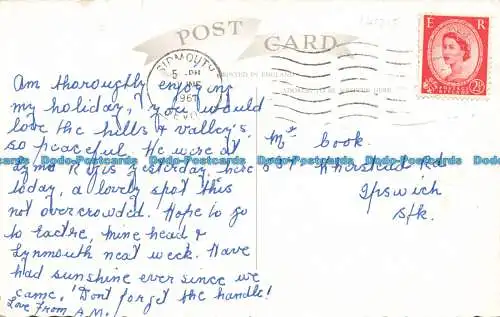 POST CARD
PRINTED IN ENGLAND
SIDMOUTH
5 - PM
E R
2½
Am thoroughly enjoying
my holiday, you would
love the hills & valley's,
so peaceful. We were at
Lyme Regis yesterday, here
today, a lovely spot this
not overcrowded. Hope to go
to Exetre, mine head &
Lynmouth next week. Have
had sunshine ever since we
came. Dont forget the handle!
Love from A.M.
Cook.
Rd
Ipswich
Sfk.
Dodo-Postcards Dodo-Postcards Dodo-Postcards Dodo-Postcards Dodo-Postcards
Dodo-Postcards Dodo-Postcards Dodo-Postcards Dodo-Postcards Dodo-Postcards